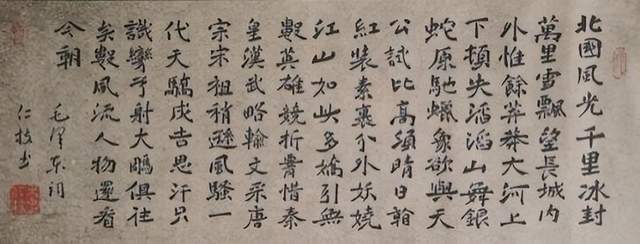 北國風光千里冰封
萬里雪飄望長城內
外惟餘莽莽大河上
下頓失滔滔山舞銀
蛇原馳蠟象欲與天
公試比高須晴日
紅裝素裹分外妖嬈
江山如此多嬌引無
數英雄競折腰惜秦
皇漢武略輸文采唐
宗宋祖稍遜風騷一
代天驕成吉思汗只
識彎弓射大鵰俱往
矣數風流人物還看
今朝
毛澤東詞
仁枝书